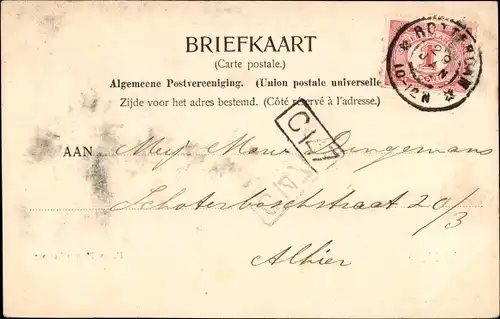 BRIEFKAART
(Carte postale.)
Algemeene Postvereeniging. (Union postale universelle
Zijde voor het adres bestemd. (Côté réservé à l'adresse.)
ROTTERDAM
10-12N
1
C 14
AAN Mej. Marie Dungemans
Schoterboschstraat 20/3
Alhier